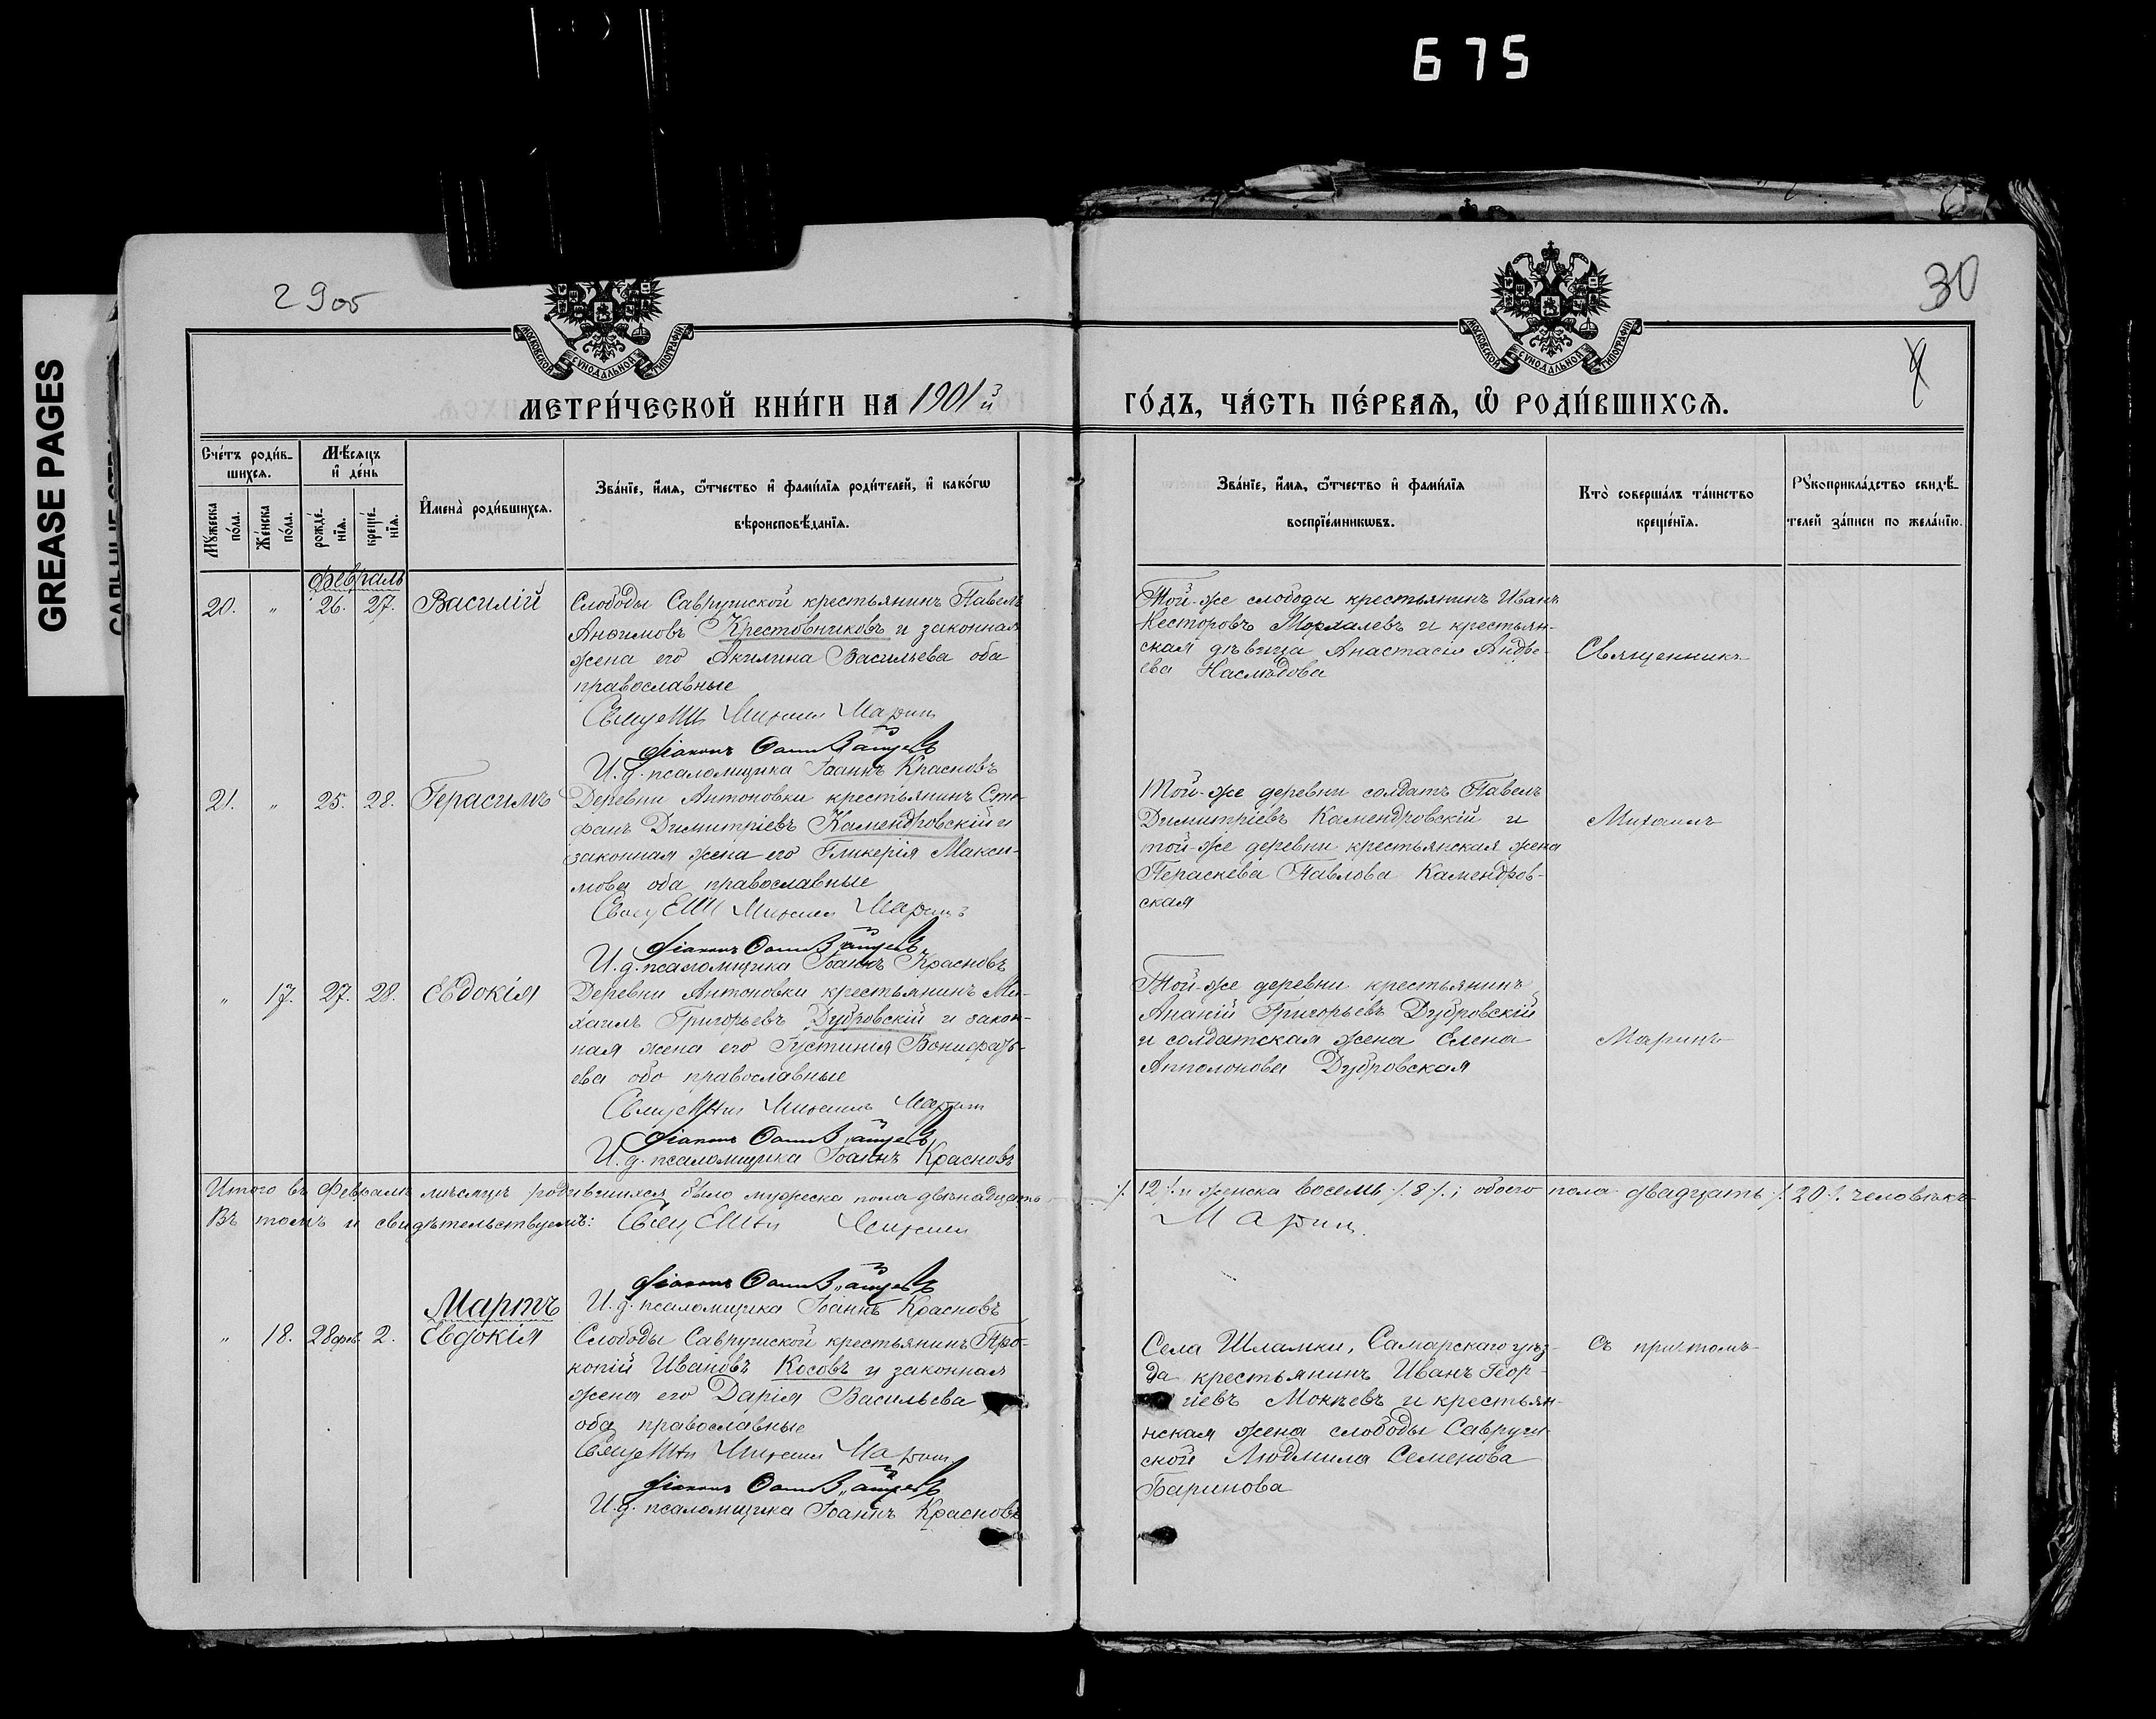 675
GREASE PAGES
29об
30
МОСКОВСКОЙ СУНОДАЛЬНОЙ ТИПОГРАФІИ
МОСКОВСКОЙ СУНОДАЛЬНОЙ ТИПОГРАФІИ
МЕТРИ́ЧЕСКОЙ КНИ́ГИ НА 1901й
ГО́ДЪ, ЧА́СТЬ ПЕ́РВАѦ, Ѡ РОДИ́ВШИХСѦ.
Счéтъ роди́в-
шихсѧ.
Мѣ́сѧцъ
и҆ дéнь
Мꙋ́жеска
по́ла.
Жéнска
по́ла.
рождé-
нїѧ.
крещé-
нїѧ.
И҆менà роди́вшихсѧ.
Звáнїе, и҆́мѧ, ѻ҆́тчество и҆ фами́лїѧ роди́телей, и҆ какóгѡ
вѣроисповѣ́данїѧ.
Звáнїе, и҆́мѧ, ѻ҆́тчество и҆ фами́лїѧ
воспрїéмникѡвъ.
Ктò совершáлъ тáинство
крещéнїѧ.
Рꙋкоприклáдство свидѣ́-
телей зáписи по желáнїю.
Февраль
20. " 26. 27. Василій
Слободы Саврушской крестьянинъ Павелъ
Анѳимовъ Крестовниковъ и законная
жена его Акилина Васильева оба
православные
Священ Михаил Марин
Діаконъ
И. д. псаломщика Іоаннъ Красновъ
Той-же слободы крестьянинъ Иванъ
Несторовъ и крестьян-
ская дѣвица Анастасія Андре-
ева Наслѣдова
Священникъ
21. " 25. 28. Герасимъ
Деревни Антоновки крестьянинъ Сте-
фанъ Димитріевъ Камендровскій и
законная жена его Гликерія Макси-
мова оба православные
Священ Михаил Маринъ
Діаконъ
И. д. псаломщика Іоаннъ Красновъ
Той-же деревни солдатъ Павелъ
Димитріевъ Камендровскій и
той-же деревни крестьянская жена
Параскева Павлова Камендров-
ская
Михаилъ
" 17. 27. 28. Евдокія
Деревни Антоновки крестьянинъ Ми-
хаилъ Григорьевъ Дубровскій и закон-
ная жена его Іустинія Вонифать-
ева обо православные
Священ Михаилъ Марин
Діаконъ
И. д. псаломщика Іоаннъ Красновъ
Той-же деревни крестьянинъ
Ананій Григорьевъ Дубровскій
и солдатская жена Елена
Апполонова Дубровская
Маринъ
Итого въ Февралѣ мѣсяцѣ родившихся было мужеска пола двѣнадцать
./. 12 ./. и женска восемь ./. 8 ./.; обоего пола двадцать ./. 20 ./. человѣкъ
Въ томъ и свидѣтельствуемъ: Священ Михаил
Марин
Діаконъ
И. д. псаломщика Іоаннъ Красновъ
Мартъ
" 18. 28 фев. 2. Евдокія
Слободы Саврушской крестьянинъ Про-
копій Ивановъ Косовъ и законная
жена его Дарія Васильева
оба православные
Священ Михаил Марин
Діаконъ
И. д. псаломщика Іоаннъ Красновъ
Села Шламки, Самарскаго уѣз-
да крестьянинъ Иванъ Геор-
гіевъ Мокѣевъ и крестьян-
нская жена слободы Савруш-
ской Людмила Семенова
Баринова
Съ причтомъ